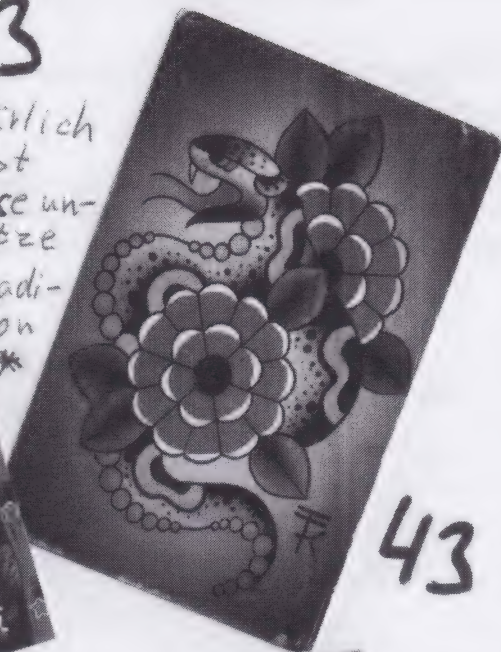 3
rlich
se un-
tze
adi-
on
*
43